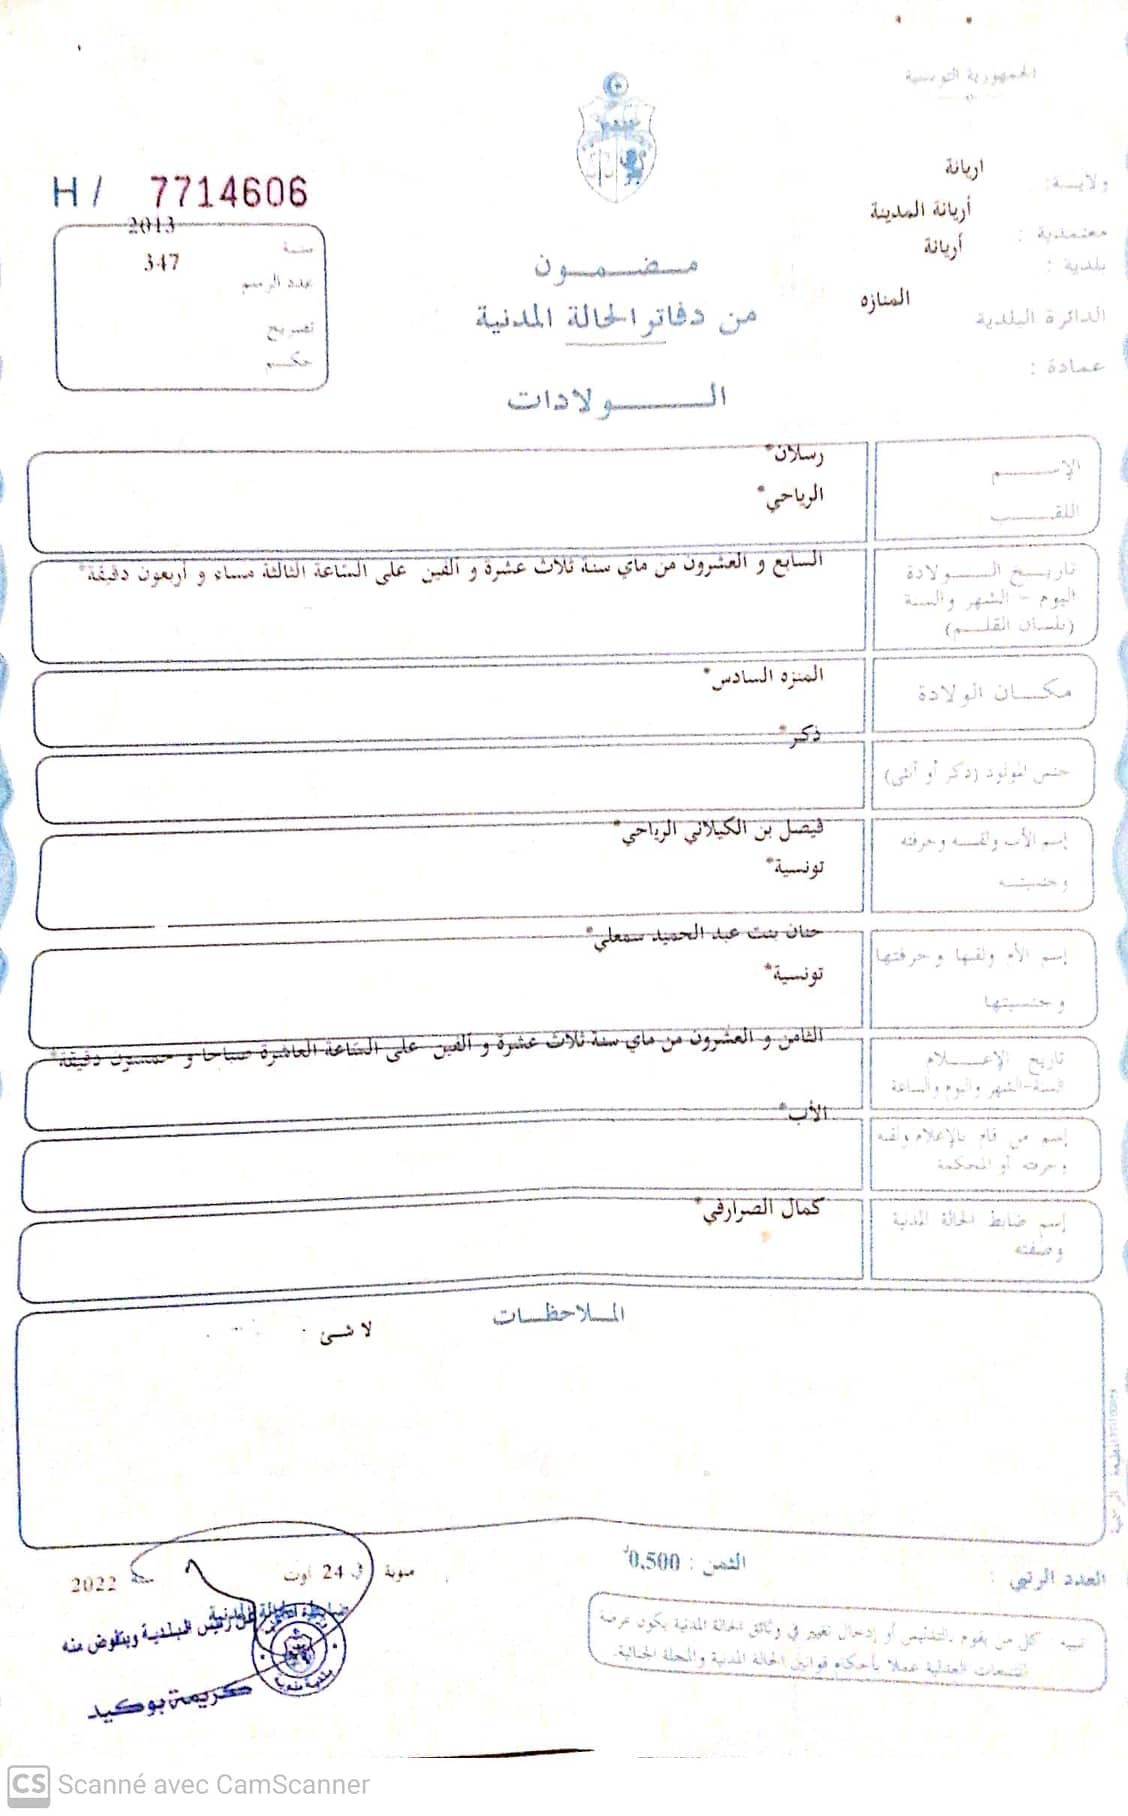 الجمهورية التونسية
ولايــة: اريانة
معتمدية : أريانة المدينة
بلدية : أريانة
الدائرة البلدية المنازه
عمادة :
H / 7714606
سنــة 2013
عدد الرسم 347
تصريح
حكــم
مـضـمـون
من دفاتر الحالة المدنية
الـــولادات
الإســـم رسلان*
اللقــب الرياحي*
تاريـخ الـــولادة السابع و العشرون من ماي سنة ثلاث عشرة و ألفين على الساعة الثالثة مساء و أربعون دقيقة*
اليوم - الشهر والسنة
(بلسان القلـم)
مكـان الولادة المنزه السادس*
جنس المولود (ذكر أو أنثى) ذكر*
إسم الأب ولقبـه وحرفته فيصل بن الكيلاني الرياحي*
وجنسيتـه تونسية*
إسم الأم ولقبها وحرفتها حنان بنت عبد الحميد سمعلي*
وجنسيتها تونسية*
تاريخ الإعـــلام الثامن و العشرون من ماي سنة ثلاث عشرة و ألفين على الساعة العاشرة صباحا و خمسون دقيقة*
السنة-الشهر واليوم والساعة
إسم من قام بالإعلام ولقبه الأب*
وحرفته أو المحكمة
إسم ضابط الحالة المدنية كمال الصرارفي*
وصفته
الملاحظـات
لا شئ
العدد الرتبي :
الثمن : 0,500د
منوبة في 24 أوت سنة 2022
تنبيه : كل من يقوم بالتفليس أو إدخال تغيير في وثائق الحالة المدنية يكون عرضة
للتتبعات العدلية عملا بأحكام قوانين الحالة المدنية والمجلة الجنائية.
عن رئيس البلدية وبتفوض منه
كريمة بوكيد
CS Scanné avec CamScanner